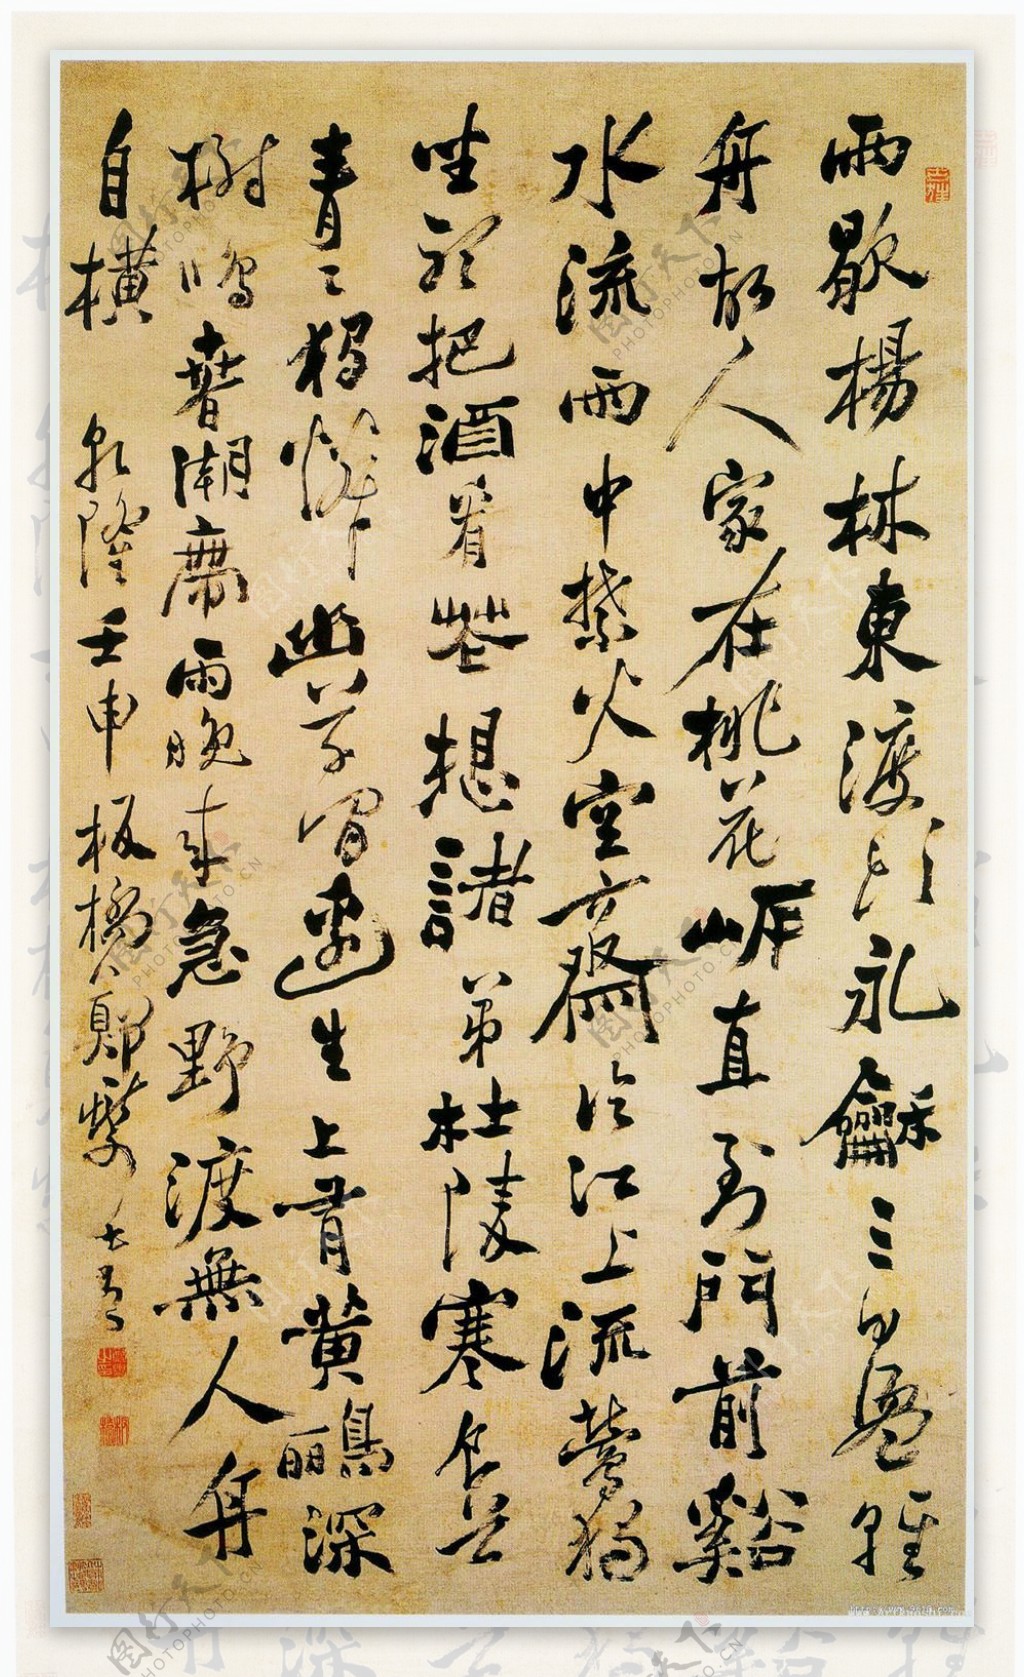 雨歇楊林東渡頭永龢三日盪輕
舟故人家在桃花岸直到門前谿
水流雨中禁火空齋冷江上流鶯獨
坐聽把酒看花想諸弟杜陵寒食草
青〻獨憐幽草澗邊生上有黃鸝深
樹鳴春潮帶雨晚來急野渡無人舟
自橫 乾隆壬申 板橋鄭燮
图行天下
PHOTOPHOTO.CN